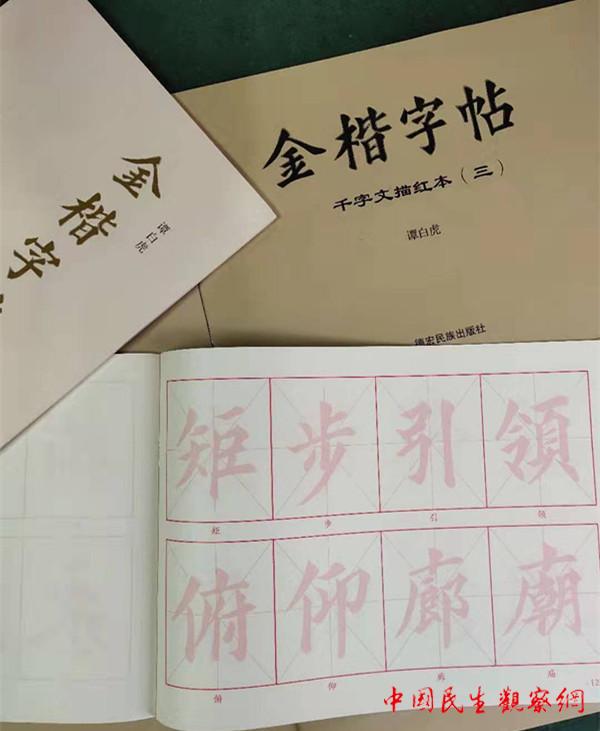 金楷字帖
千字文描红本（三）
谭白虎
德宏民族出版社
金楷字
谭白虎
矩步引領
矩 步 引 领
俯仰廊廟
俯 仰 廊 庙
12
中國民生觀察網